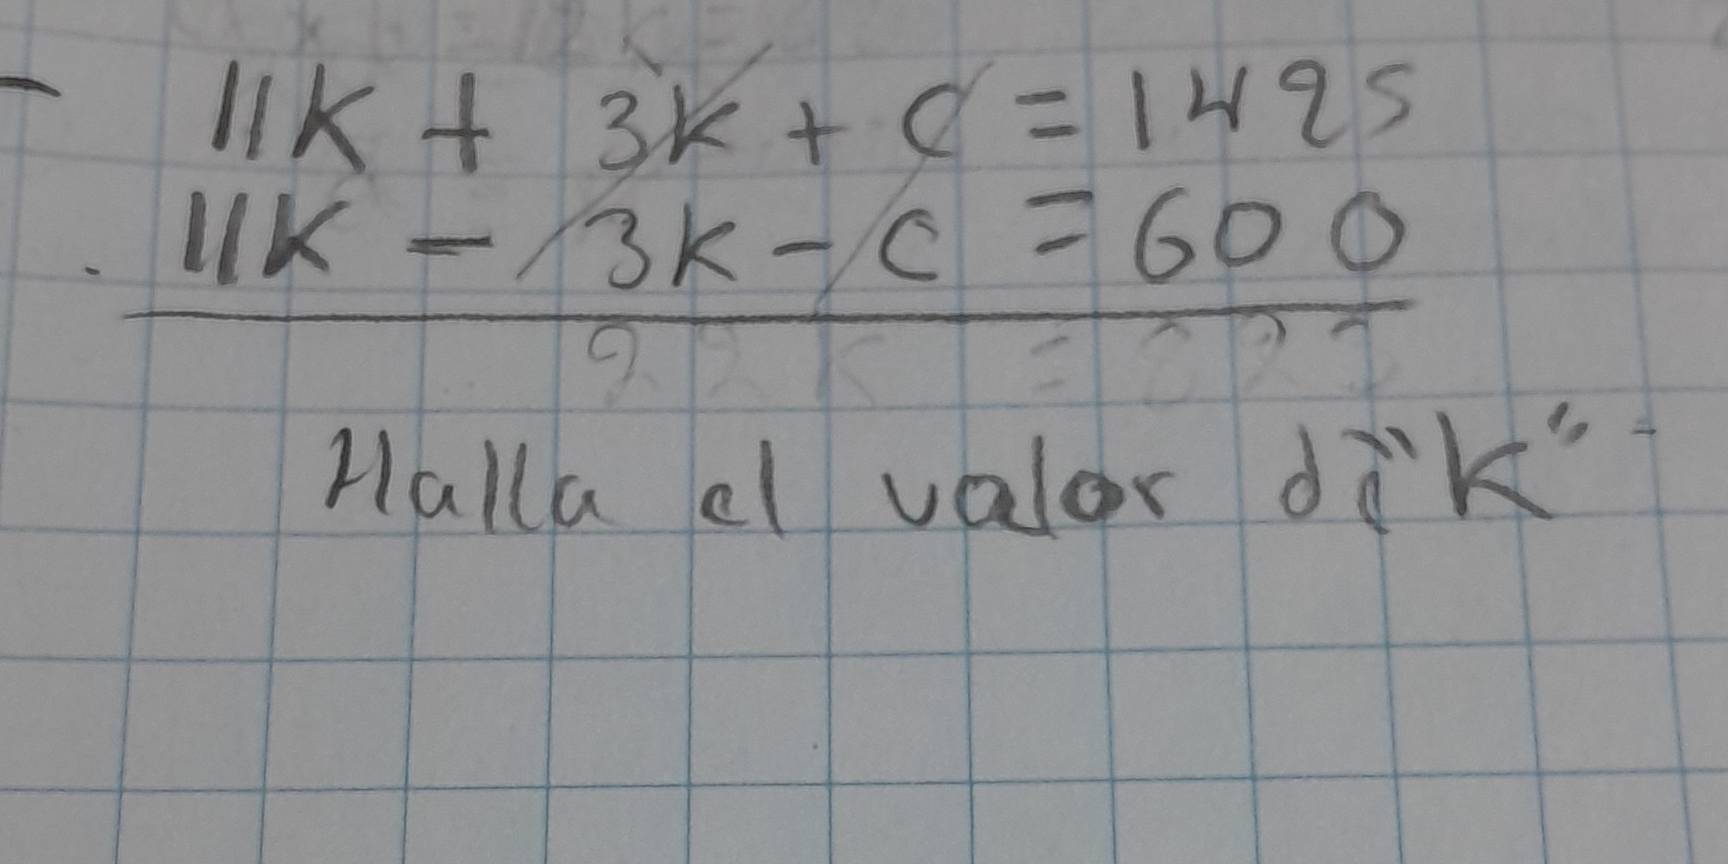 11K + 3K + C = 1495
11K - 3K - C = 600
Halla el valor de "K"